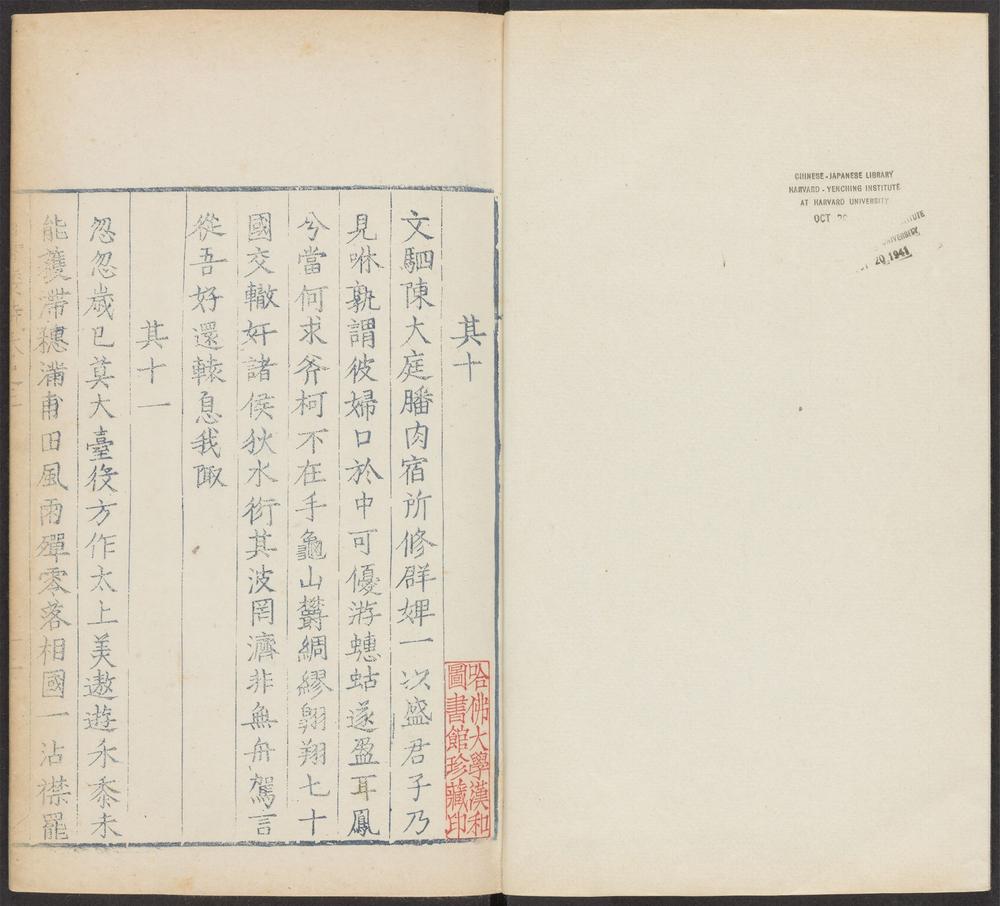 CHINESE-JAPANESE LIBRARY
HARVARD-YENCHING INSTITUTE
AT HARVARD UNIVERSITY
OCT 20
UNIVERSITY
20 1941
其十
文駟陳大庭膰肉宿所修群婢一以盛君子乃
見咻孰謂彼婦口於中可優游蟪蛄遂盈耳鳳
兮當何求斧柯不在手龜山鬱綢繆翱翔七十
國交轍奸諸侯狄水衍其波罔濟非無舟駕言
從吾好還轅息我陬
其十一
忽忽歲已莫大臺役方作太上美遨遊禾黍未
能穫滯穗滿甫田風雨殫零落相國一沾襟罷
哈佛大學漢和
圖書館珍藏印